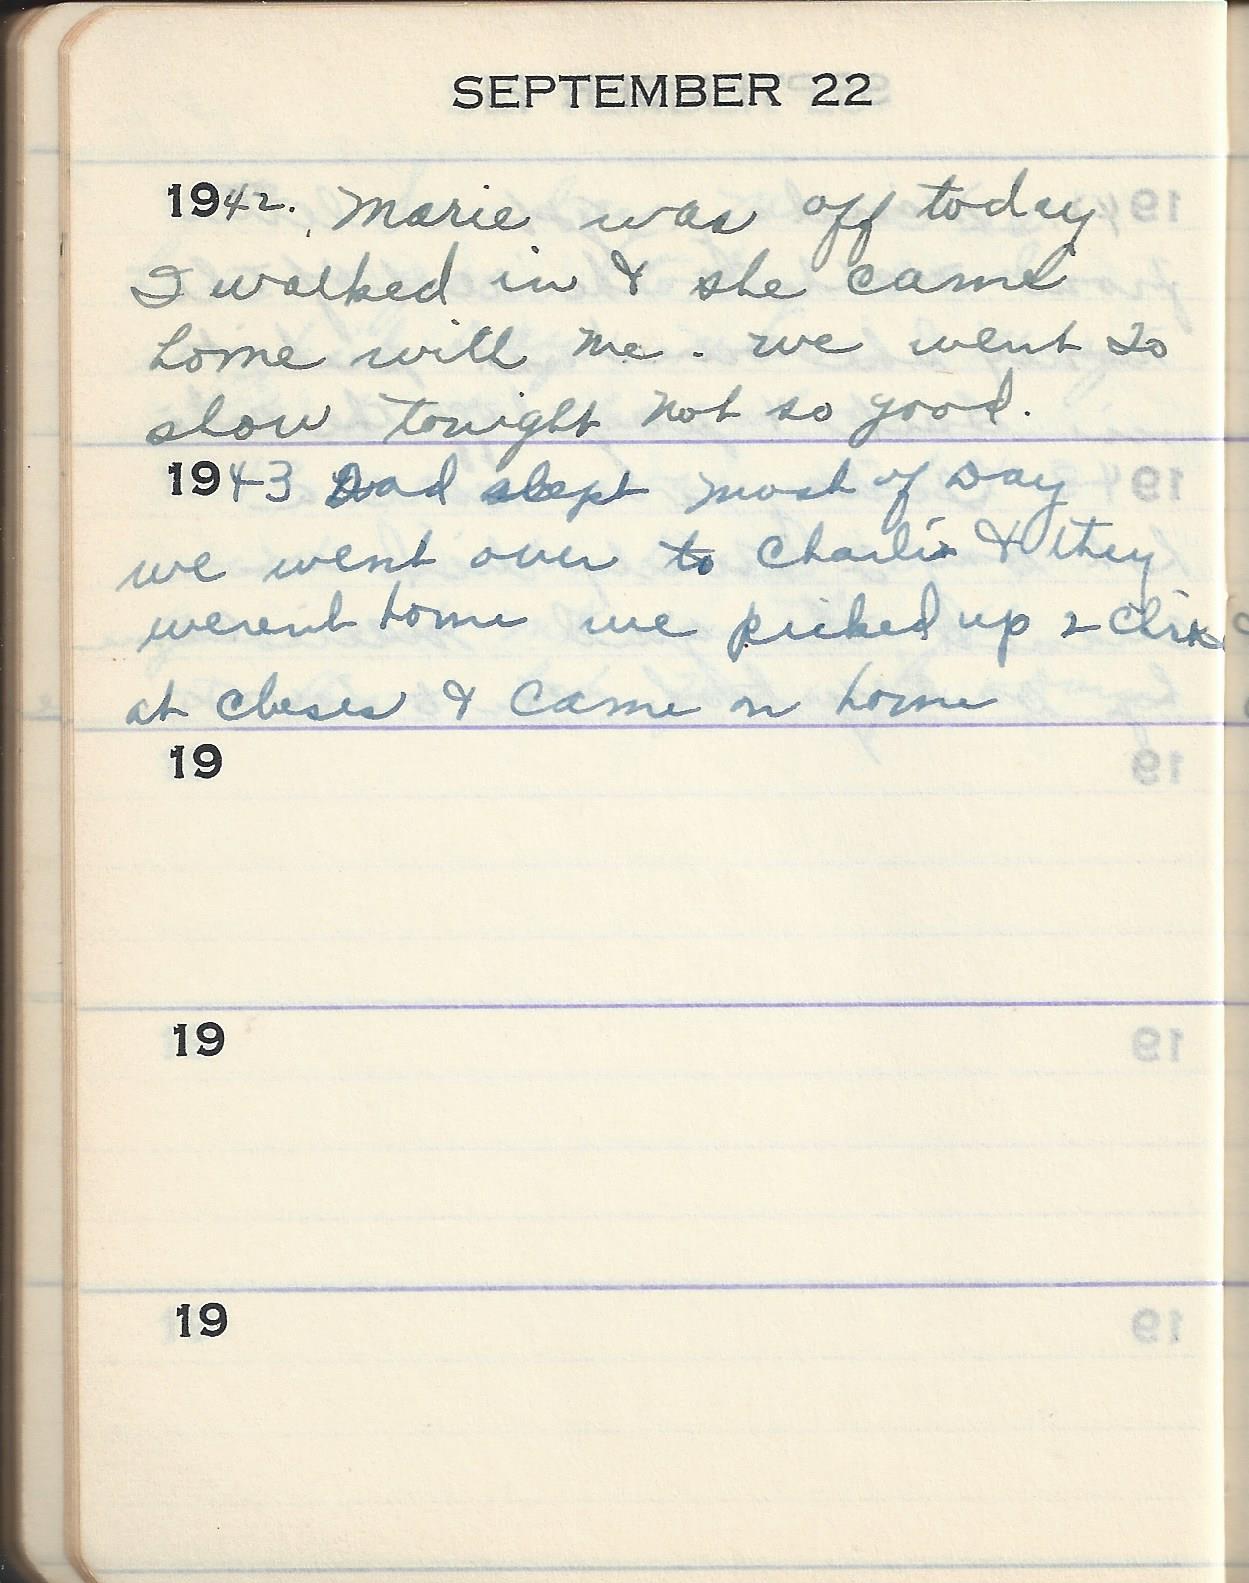 SEPTEMBER 22
1942. Marie was off today
I walked in & she came
home with me. we went to
show tonight not so good.
1943 Dad slept most of Day
we went over to Charlie & they
werent home we picked up 2
at & came on home
19
19
19